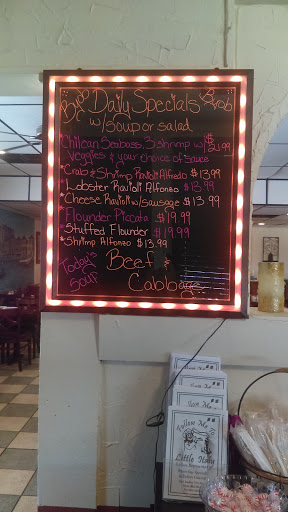 Byob Daily Specials Byob
w/soup or salad
*Chilean Seabass, 3 shrimp w/ $21.99
veggies & your choice of sauce
*Crab & Shrimp Ravioli Alfredo $13.99
*Lobster Ravioli Alfonzo $13.99
*Cheese Ravioli w/sausage $13.99
*Flounder Piccata $19.99
*Stuffed Flounder $19.99
*Shrimp Alfonzo $13.99
Today's Soup
Beef &
Cabbage
Follow Me To
Little Italy